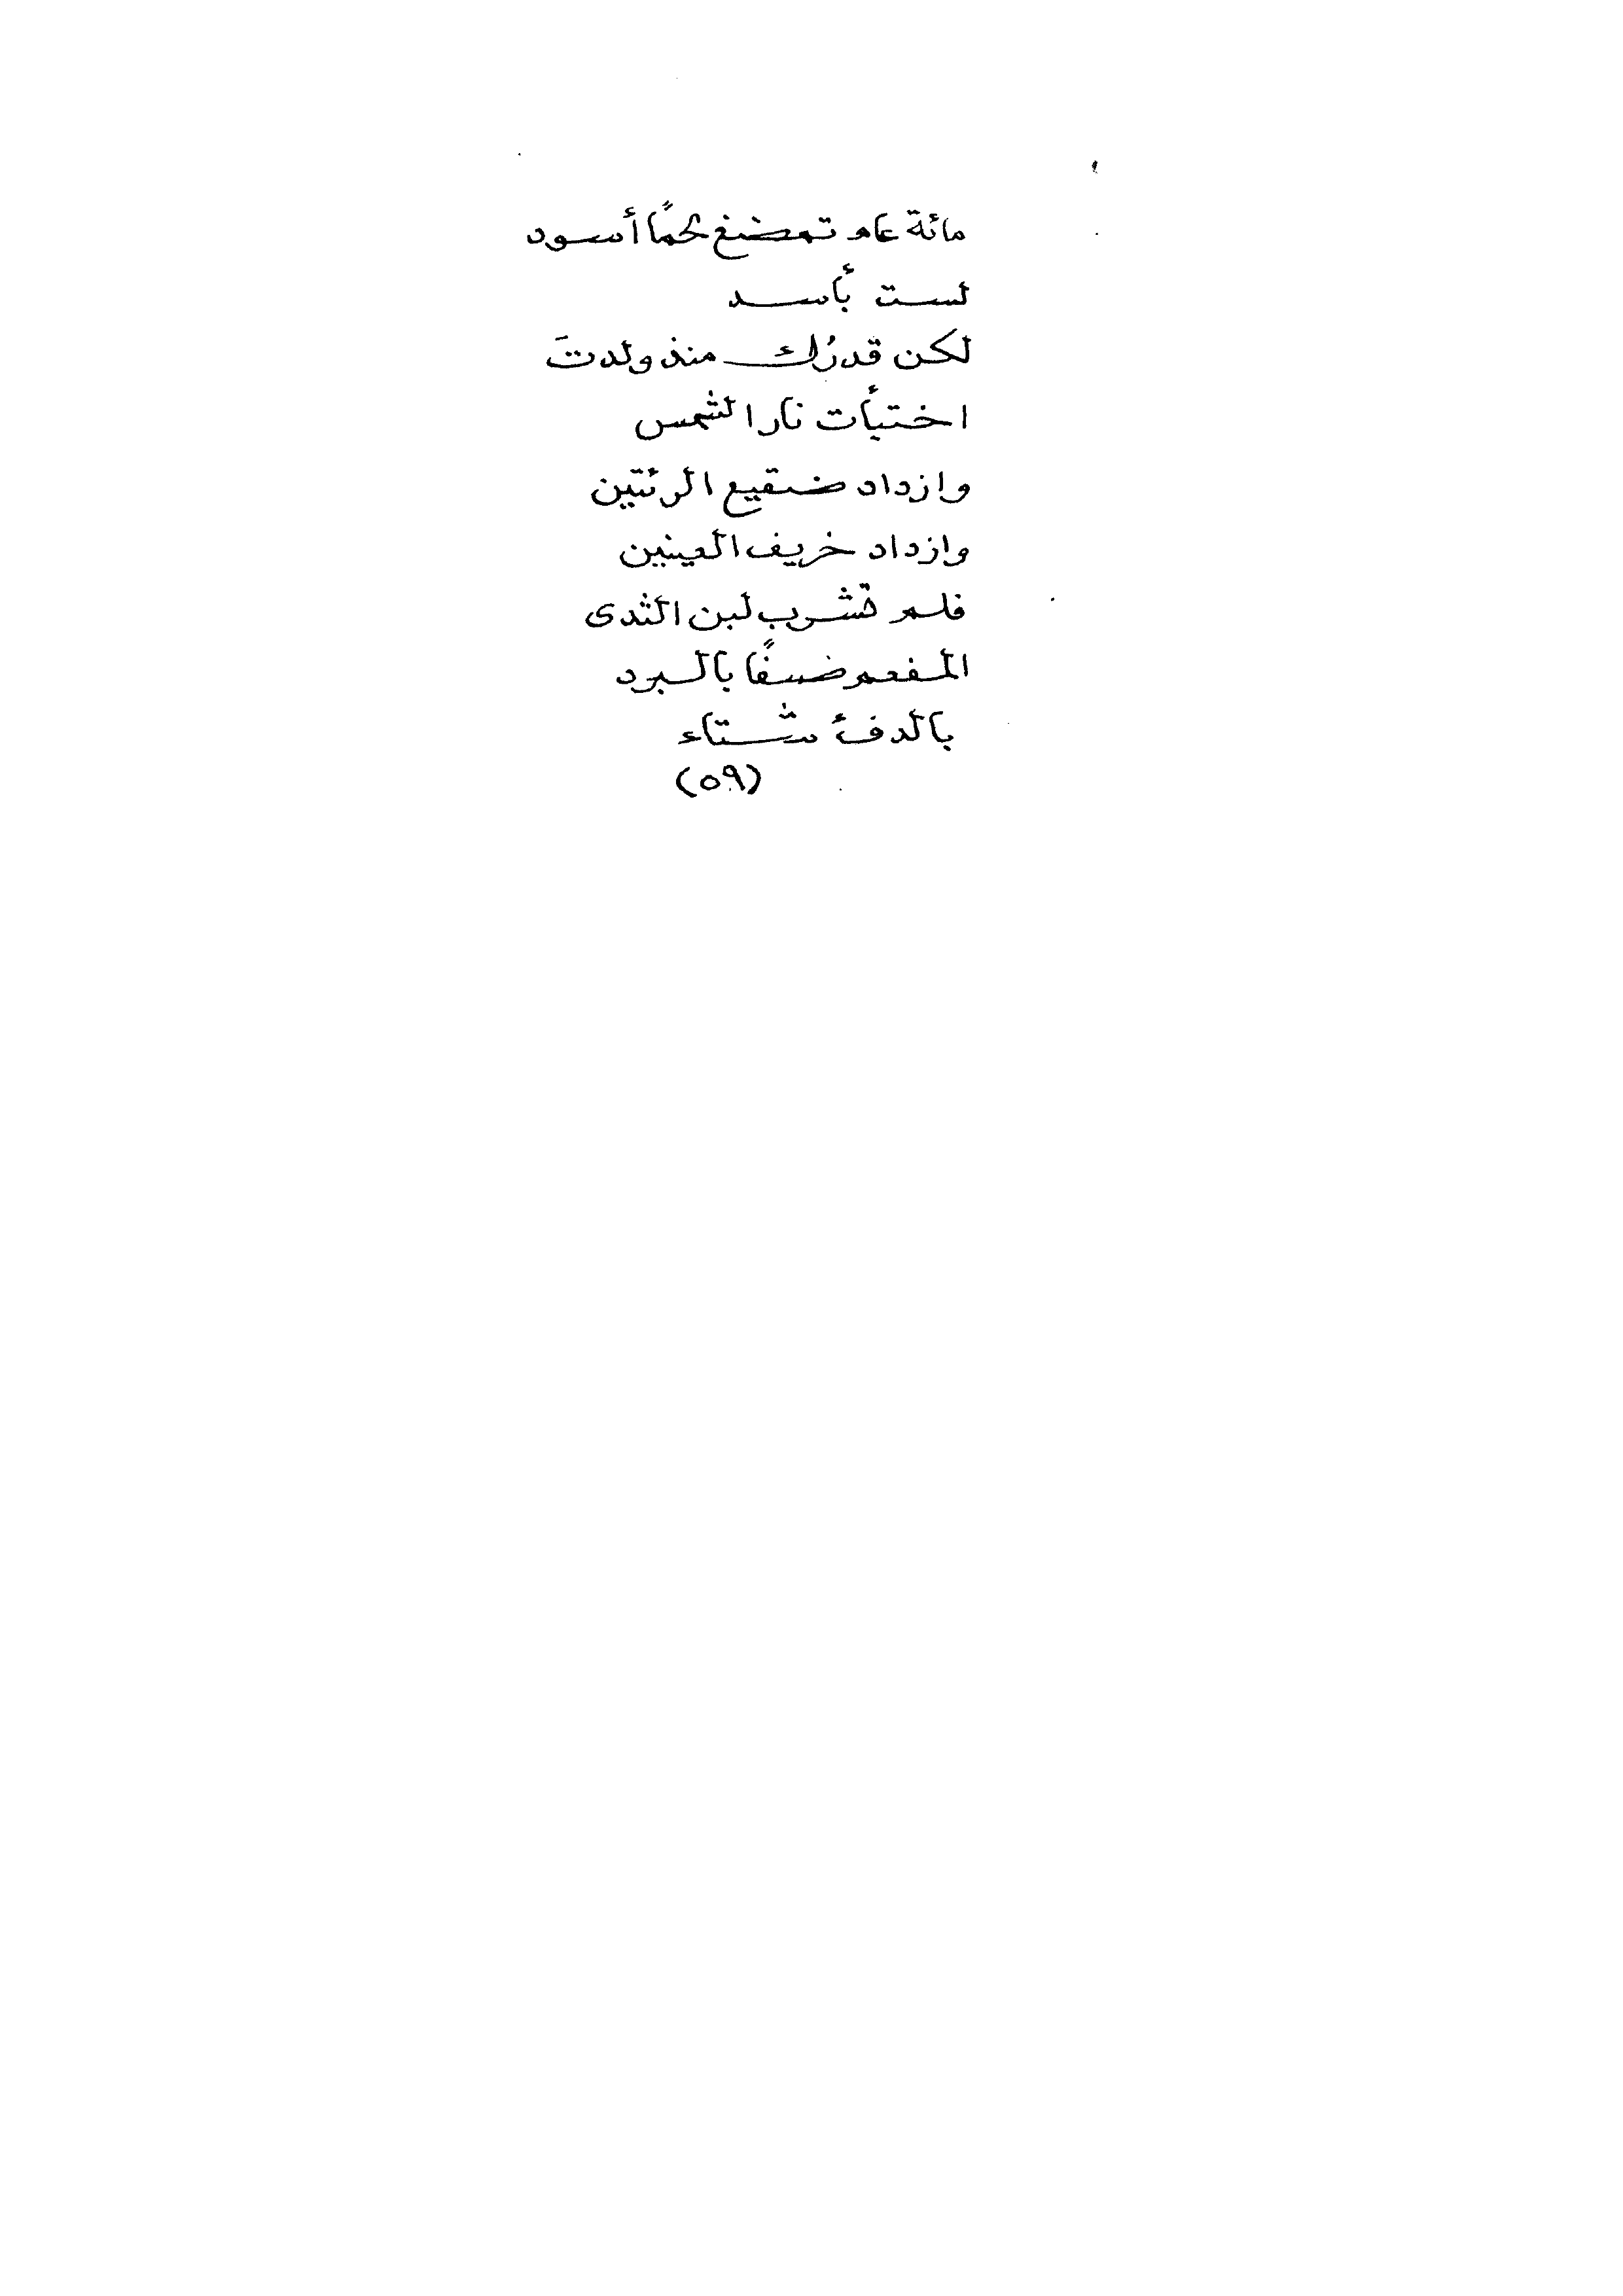 مائة عام تمضغ لحمًا أسود
لست بأسد
لكن قدرُك منذ ولدتَ
اختبأت نار الشمس
وازداد صقيع الرئتين
وازداد خريف العينين
فلم تشرب لبن الثدى
المفعم صيفًا بالبرد
بالدفئ شتاء
(٥٩)